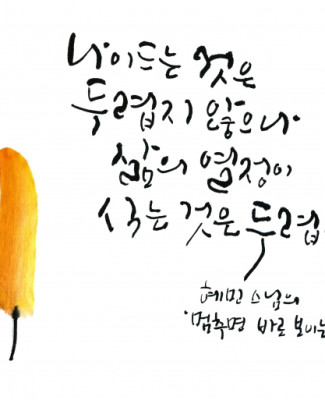 나이드는 것은
두렵지 않으나
삶의 열정이
식는 것은 두렵
혜민스님의
'멈추면 바로 보이는